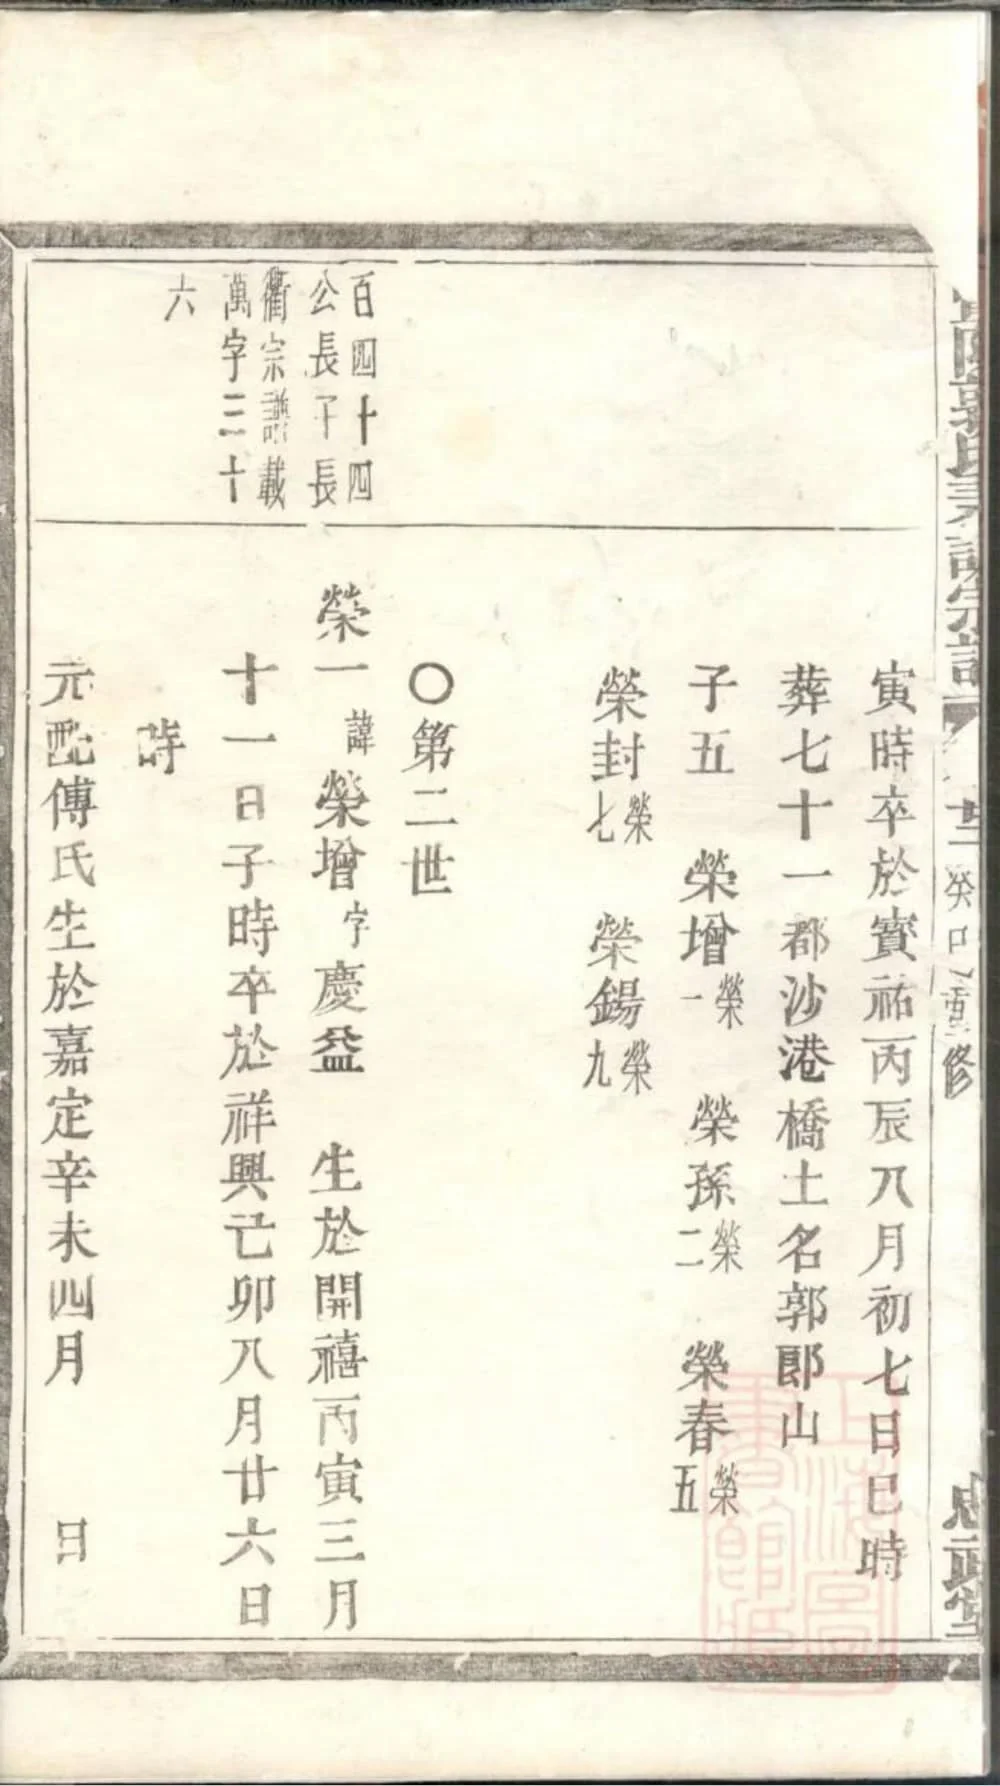 寅時卒於寳祐丙辰八月初七日巳時
葬七十一都沙港橋土名郭郎山
子五 榮增榮一 榮孫榮二 榮春榮五
榮封榮七 榮錫榮九
〇第二世
百四十四
公長子長
衢宗譜載
萬字三十
六
榮一諱榮增字慶益 生於開禧丙寅三月
十一日子時卒於祥興己卯八月廿六日
時
元配傅氏生於嘉定辛未四月 日
氏
宗
重修
忠